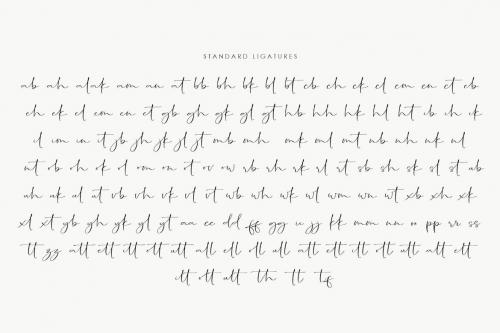 STANDARD LIGATURES
ab ah al ak am an at bb bh bk bl bt cb ch ck cl cm cn ct eb
eh ek el em en et gb gh gk gl gt hb hh hk hl ht ib ih ik
il im in it jb jh jk jl jt mb mh mk ml mt nb nh nk nl
nt ob oh ok ol om on ot ov ow rb rh rk rl rt sb sh sk sl st ub
uh uk ul ut vb vh vk vl vt wb wh wk wl wm wn wt xb xh xk
xl xt yb yh yk yl yt aa ee dd ff gg ii jj kk mm nn oo pp rr ss
tt zz att ett itt ott utt all ell ill oll ull
itt ott utt th tt tf